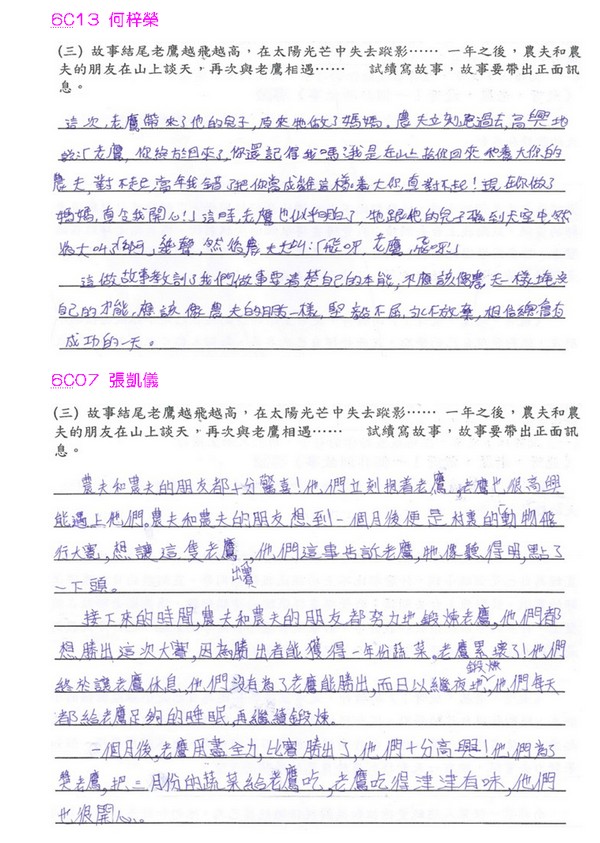 6C13 何梓榮
(三) 故事結尾老鷹越飛越高，在太陽光芒中失去蹤影…… 一年之後，農夫和農
夫的朋友在山上談天，再次與老鷹相遇…… 試續寫故事，故事要帶出正面訊
息。
這次,老鷹帶來了他的兒子,原來牠做了媽媽。農夫立刻跑過去,高興地
說:「老鷹,你終於回來了,你還記得我嗎?我是在山上救你回來,也養大你的
農夫,對不起,當年我錯了把你當成雞這樣養大你,真對不起!現在你做了
媽媽,真令我開心!」這時,老鷹也似乎明白了,牠跟他的兒子飛到天空中,然
後大叫了幾聲,然後農夫大叫:「飛呀,老鷹,飛呀!」
這個故事教訓了我們做事要清楚自己的本能,不應該像農夫一樣埋沒
自己的才能,應該像農夫的朋友一樣,堅毅不屈,永不放棄,相信總會有
成功的一天。
6C07 張凱儀
(三) 故事結尾老鷹越飛越高，在太陽光芒中失去蹤影…… 一年之後，農夫和農
夫的朋友在山上談天，再次與老鷹相遇…… 試續寫故事，故事要帶出正面訊
息。
農夫和農夫的朋友都十分驚喜!他們立刻抱着老鷹,老鷹也很高興
能遇上他們。農夫和農夫的朋友想到一個月後便是村裏的動物飛
行大賽,想讓這隻老鷹出賽,他們這事告訴老鷹,牠像聽得明,點了
一下頭。
接下來的時間,農夫和農夫的朋友都努力地鍛煉老鷹,他們都
想勝出這次大賽,因為勝出者能獲得一年份蔬菜。老鷹累壞了!他們
終於讓老鷹休息,他們沒有為了老鷹能勝出,而日以繼夜地鍛煉,他們每天
都給老鷹足夠的睡眠,再繼續鍛煉。
一個月後,老鷹用盡全力,比賽勝出了,他們十分高興!他們為了
獎老鷹,把三月份的蔬菜給老鷹吃,老鷹吃得津津有味,他們
也很開心。